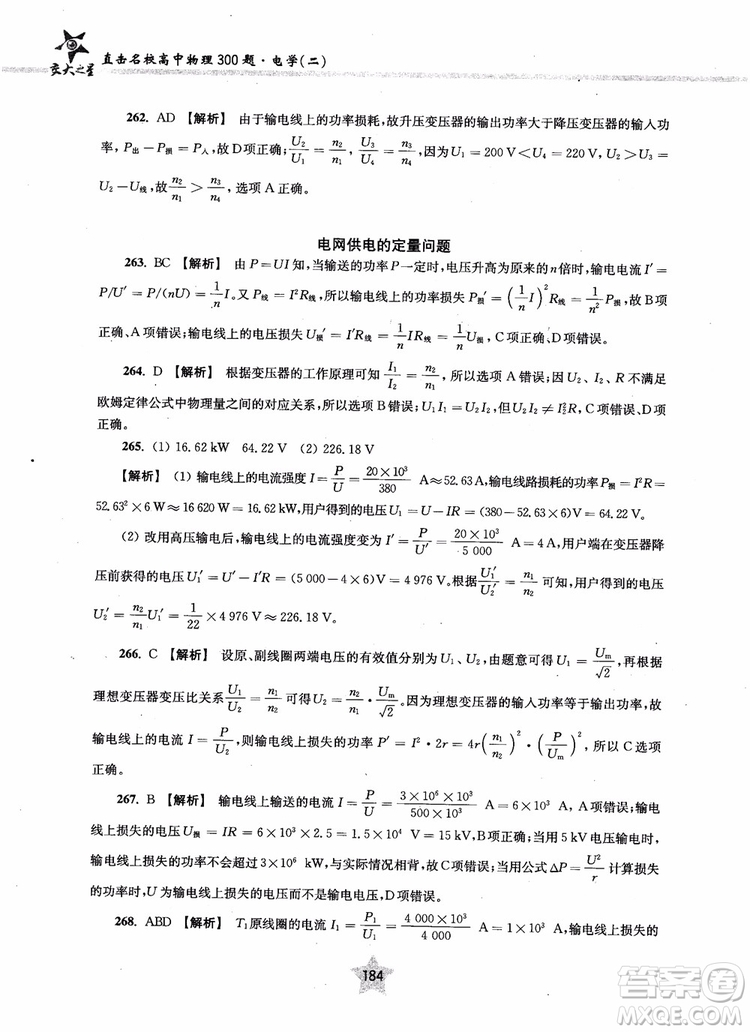 交大之星
直击名校高中物理300题·电学(二)
262. AD 【解析】 由于输电线上的功率损耗,故升压变压器的输出功率大于降压变压器的输入功
率,P出－P损=P入,故D项正确;U₂/U₁=n₂/n₁,U₃/U₄=n₃/n₄,因为U₁=200 V<U₄=220 V,U₂>U₃=
U₂－U线,故n₂/n₁>n₃/n₄,选项A正确。
电网供电的定量问题
263. BC 【解析】 由P=UI知,当输送的功率P一定时,电压升高为原来的n倍时,输电电流I′=
P/U′=P/(nU)=1/n I。又P线=I²R线,所以输电线上的功率损失P损′=(1/n I)²R线=1/n² P损,故B项
正确、A项错误;输电线上的电压损失U损′=I′R线=1/n IR线=1/n U损,C项正确、D项错误。
264. D 【解析】 根据变压器的工作原理可知I₁/I₂=n₂/n₁,所以A项错误;因U₂、I₂、R不满足
欧姆定律公式中物理量之间的对应关系,所以选项B错误;U₁I₁=U₂I₂,但U₂I₂≠I₂²R,故C项错误、D项
正确。
265. (1) 16.62 kW 64.22 V (2) 226.18 V
【解析】 (1) 输电线上的电流强度I=P/U=20×10³/380 A≈52.63A,输电线路损耗的功率P损=I²R=
52.63²×6 W≈16 620 W=16.62 kW,用户得到的电压U₁=U－IR=(380－52.63×6) V=64.22 V。
(2) 改用高压输电后,输电线上的电流强度变为I′=P/U′=20×10³/5 000 A=4 A,用户端在变压器降
压前获得的电压U₁′=U′－I′R=(5 000－4×6) V=4 976 V。根据U₁′/U₂′=n₁/n₂可知,用户得到的电压
U₂′=n₂/n₁ U₁′=1/22×4 976 V≈226.18 V。
266. C 【解析】 设原、副线圈两端电压的有效值分别为U₁、U₂,由题意可得U₁=Um/√2,再根据
理想变压器变比关系U₁/U₂=n₁/n₂可得U₂=n₂/n₁·Um/√2。因为理想变压器的输入功率等于输出功率,故
输电线上的电流I=P/U₂,则输电线上损失的功率P′=I²·2r=4r(n₁/n₂)²·(P/Um)²,所以C选项
正确。
267. B 【解析】 输电线上输送的电流I=P/U=3×10⁶×10³/500×10³ A=6×10³ A,故A项错误;输电
线上损失的电压U损=IR=6×10³×2.5=1.5×10⁴ V=15 kV,B项正确;如果用5 kV电压输电时,
输电线上损失的功率不会超过3×10⁶ kW,与实际情况相背,故C项错误;当用公式ΔP=U²/r计算损失
的功率时,U为输电线上损失的电压而不是输电电压,D项错误。
268. ABD 【解析】 T₁原线圈的电流I₁=P₁/U₁=4 000×10³/4 000 A=1×10³ A,输电线上损失的
184
答案圈
MXQE.COM